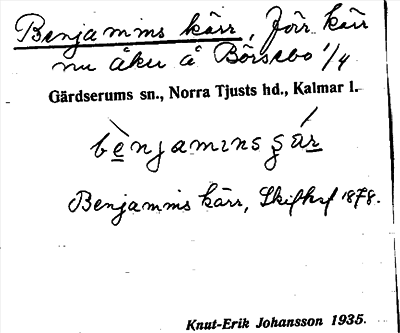 Benjamins kärr, förr kärr
nu åker å Börsebo 1/4
Gärdserums sn., Norra Tjusts hd., Kalmar l.
bènjamins ɟár
Benjamins kärr, Skifhf 1878.
Knut-Erik Johansson 1935.